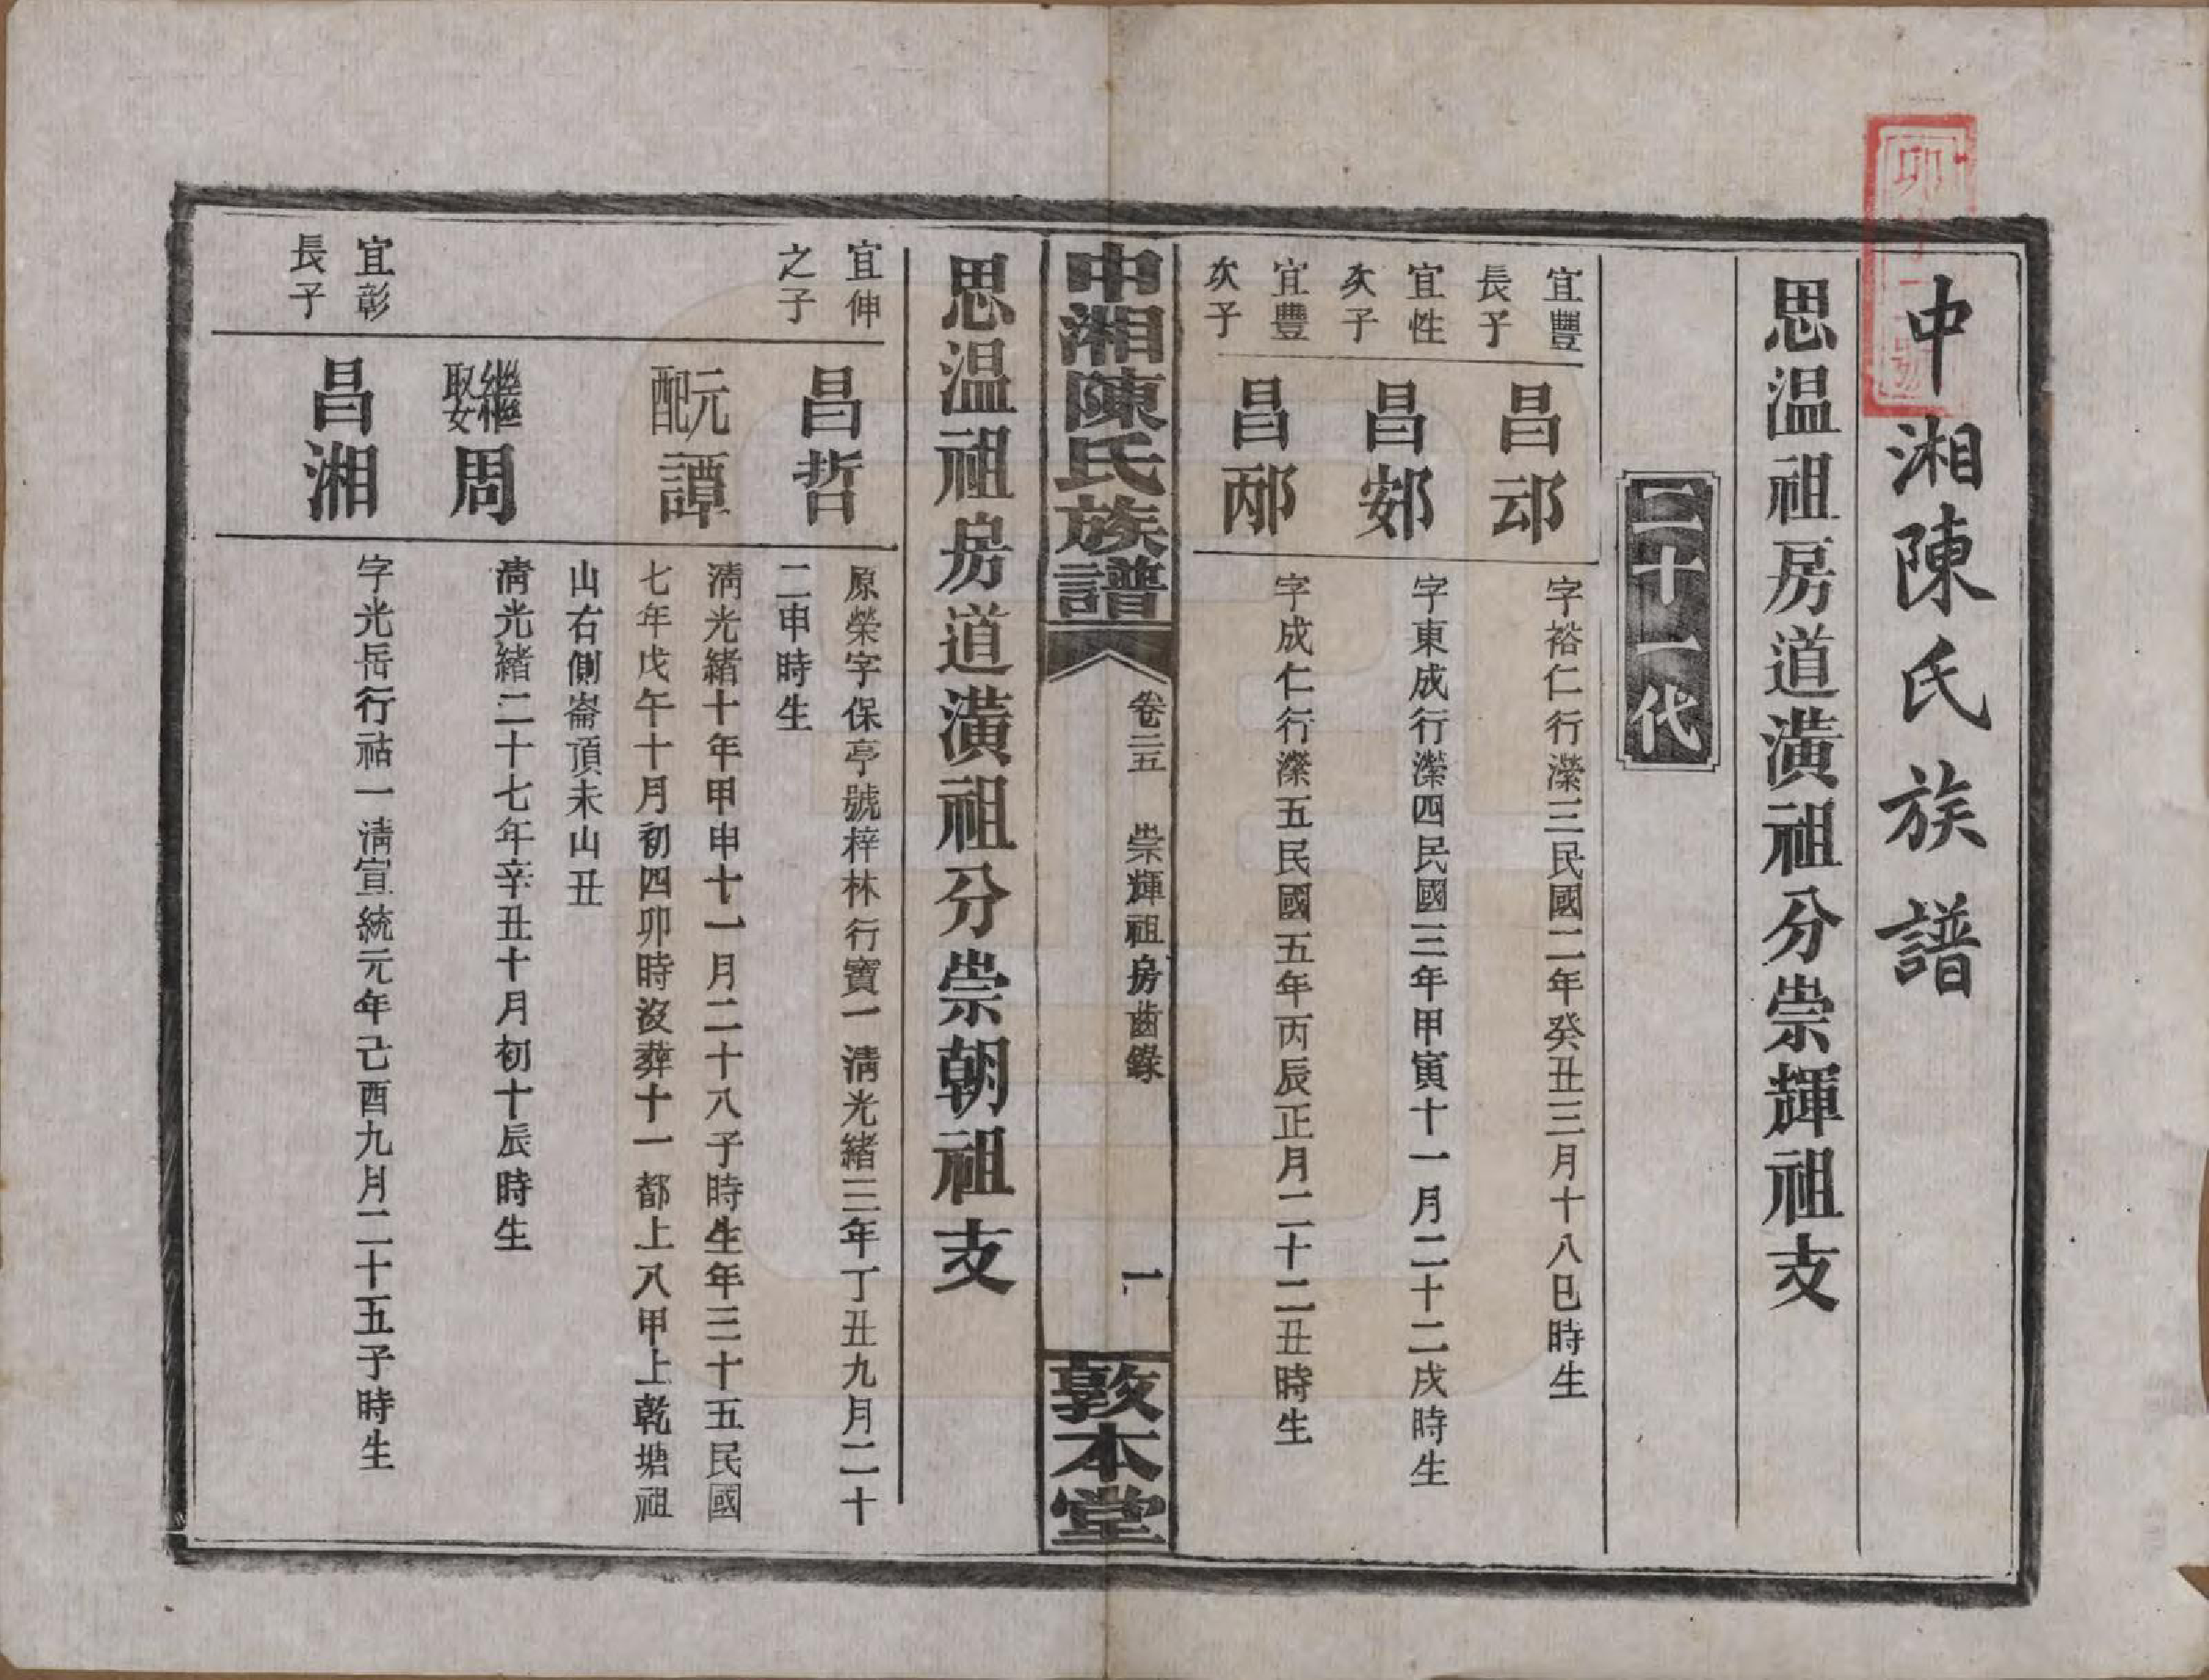 中湘陳氏族譜
思温祖房道潢祖分崇輝祖支
二十一代
宜豐
長子
昌邧
字裕仁行濚三民國二年癸丑三月十八巳時生
宜性
次子
昌郊
字東成行濚四民國三年甲寅十一月二十二戌時生
宜豐
次子
昌邴
字成仁行濚五民國五年丙辰正月二十二丑時生
中湘陳氏族譜
卷二五
崇輝祖房齒錄
一
敦本堂
思温祖房道潢祖分崇朝祖支
宜伸
之子
昌哲
原榮字保亭號梓林行寶一清光緒三年丁丑九月二十
二申時生
元配
譚
清光緒十年甲申十一月二十八子時生年三十五民國
七年戊午十月初四卯時沒葬十一都上八甲上乾塘祖
山右側崙頂未山丑
繼娶
周
清光緒二十七年辛丑十月初十辰時生
宜彰
長子
昌湘
字光岳行祜一清宣統元年己酉九月二十五子時生